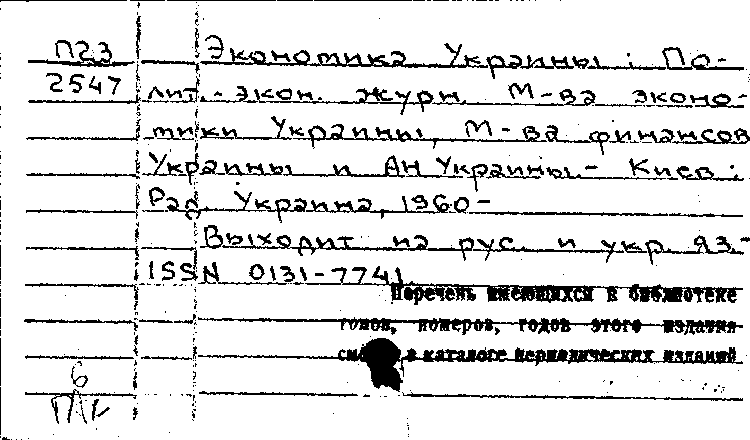 П23 Экономика Украины : По-
2547 лит.-экон. журн. М-ва эконо-
мики Украины, М-ва финансов
Украины и АН Украины.- Киев :
Рад. Украина, 1960-
Выходит на рус. и укр. яз.-
ISSN 0131-7741.
Перечень имеющихся в библиотеке
томов, номеров, годов этого издания
в каталоге периодических изданий
6